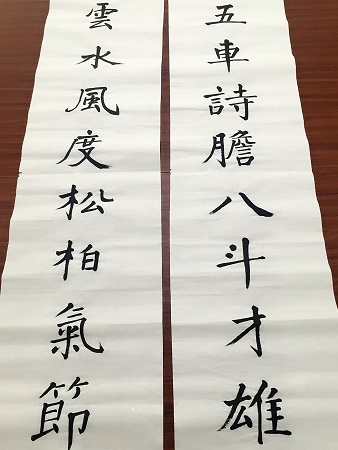 五車詩膽八斗才雄
雲水風度松柏氣節